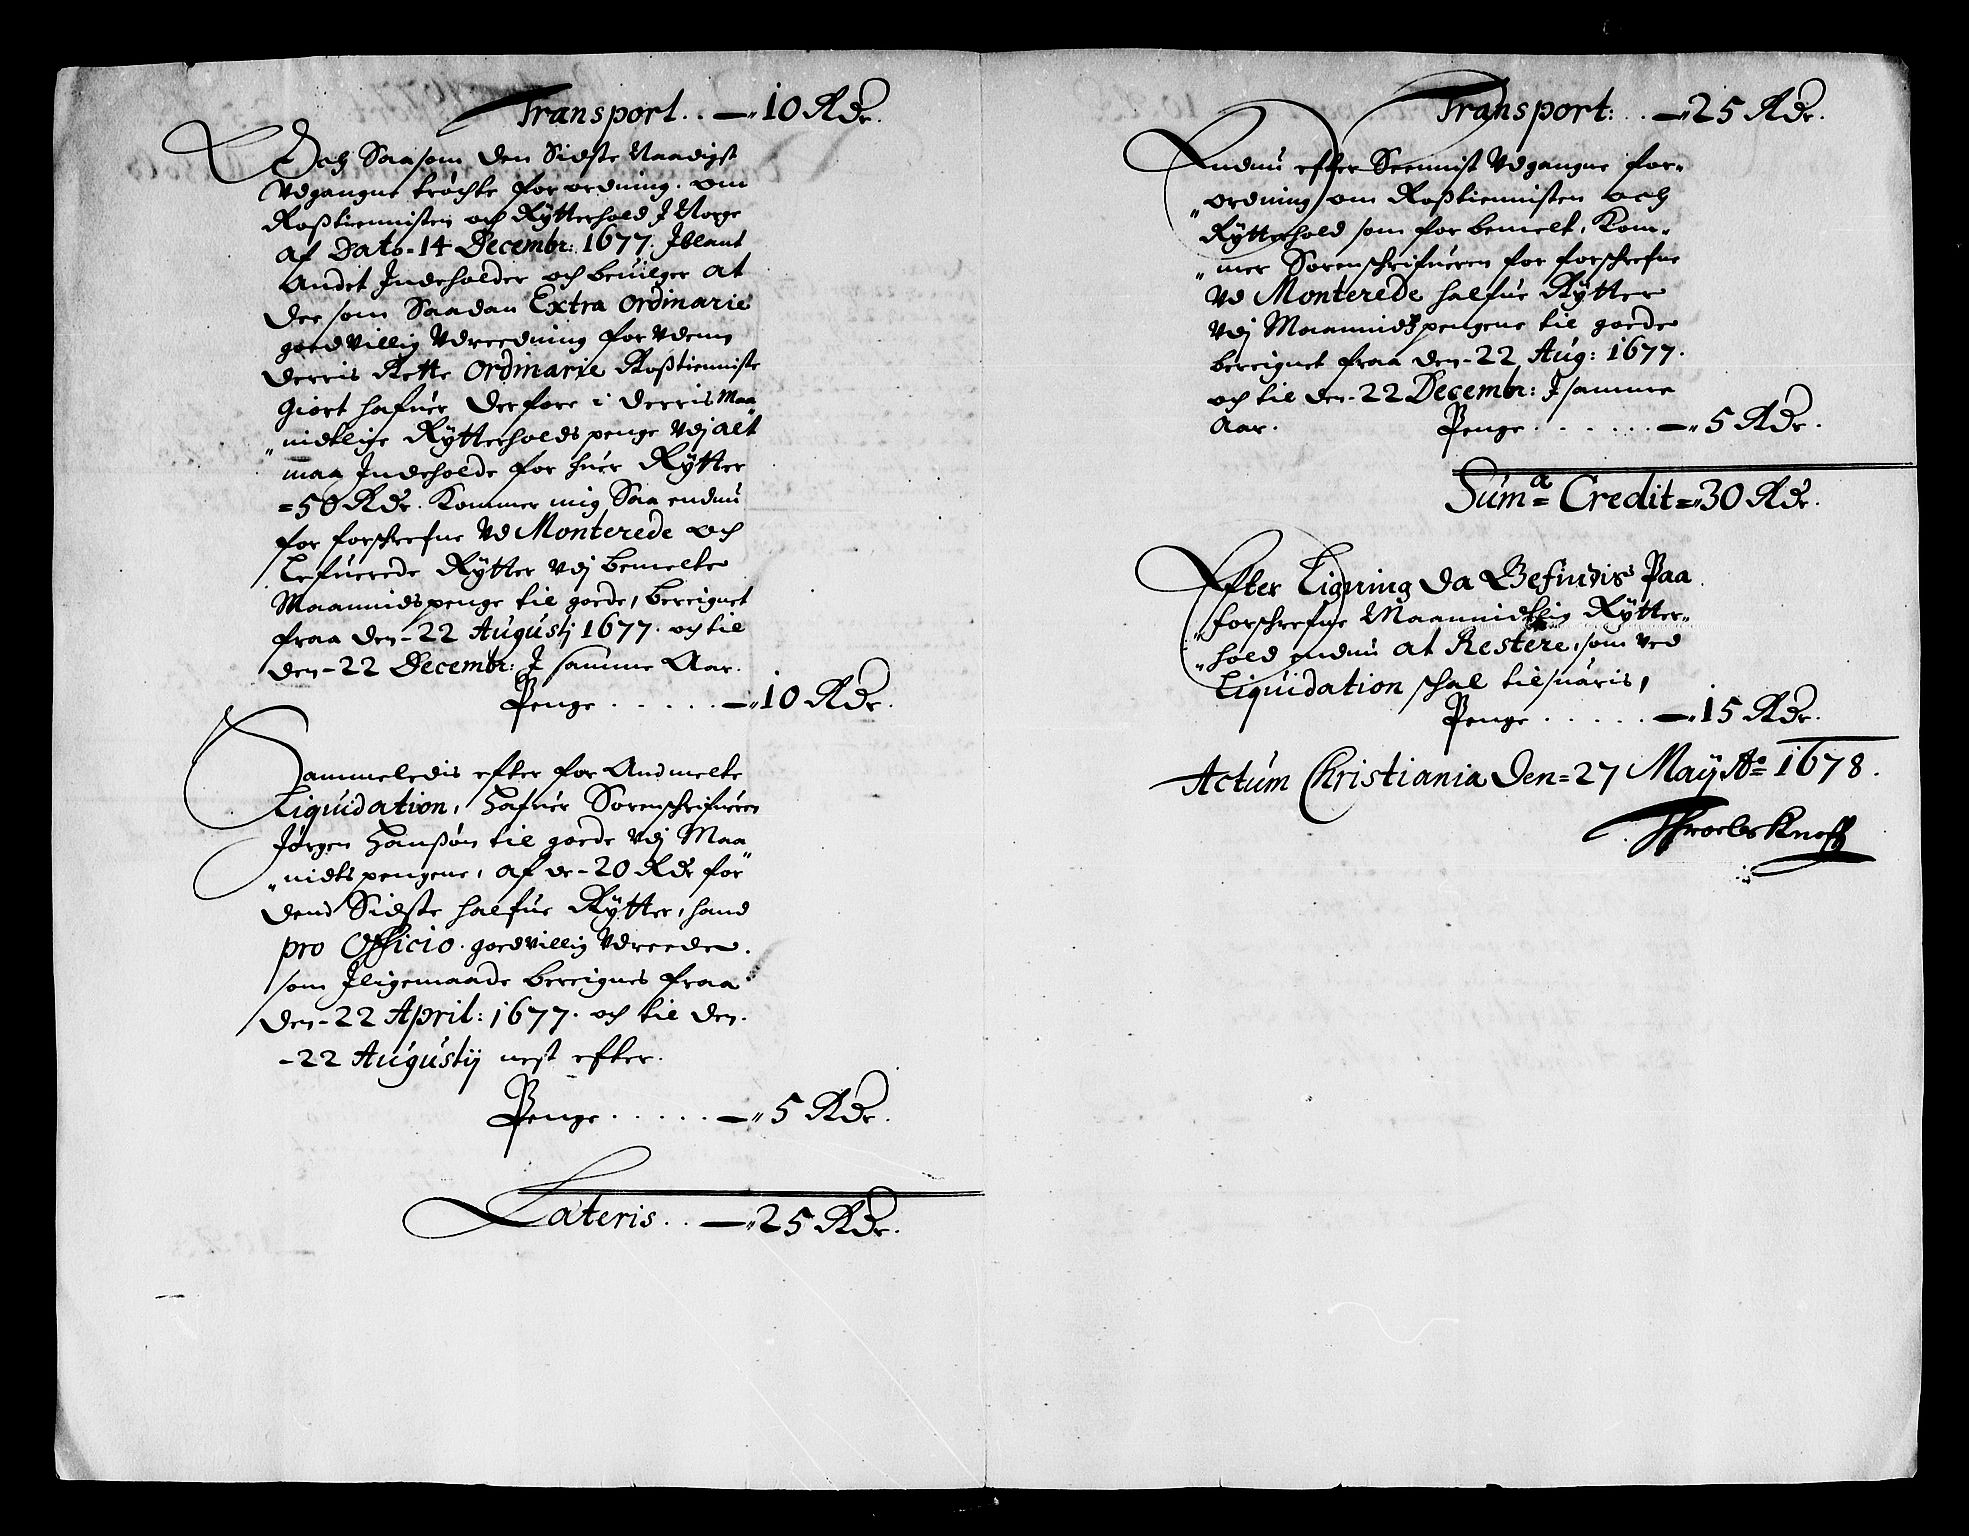 Transport . . — 10 Rdr.
Och Saasom den Sidste Naadigst
Vdgangne tröchte forordning. om
Rostienisten och Rÿtterhold J Norge
af Dato - 14 Decembr: 1677. Jblant
Andet Indeholder och beuilger at
dee som Saadan Extra Ordinarie
goedVillig Vdreedning foruden
derris Rette Ordinarie Roßtienniste
Giort hafuer derfore i derris Maa
nidtlige Rÿtterholds penge Vdj alt
maa Indeholde for huer Rÿtter
=50 Rdr. Kommer mig Saa endnu
for forschrefne Vd Monterede och
Lefuerede Rÿtter Vdj bemelte
Maannidspenge til goede, bereignet
fraa den - 22 Augustj 1677. och til
den - 22 Decembr: J samme Aar.
Penge . . . . . — 10 Rdr.
Sammeledis efter for Andmelte
Liquidation, Hafuer Sorenschrifueren
Jörgen Hanßön til goede Vdj Maa
nidtspengene, af de - 20 Rdr for
dend Sidste halfue Rÿtter, hand
pro Officio. goedvillig Vdreeder.
som Jligemaade bereignes fraa
den - 22 April: 1677. och til den.
- 22 Augustij nest efter.
Penge . . . . . — 5 Rdr.
Lateris . . — 25 Rdr.
Transport: . . — 25 Rdr.
Endnu efter Seennist Vdgangne for-
ordning om Roßtiennisten och
Rÿtterhold som forbemelt, Kom-
mer Sorenschrifueren for forschrefne
Vd Monterede halfue Rÿtter
Vdj Maannidspengene til goede
bereignet fraa den - 22 Aug: 1677.
och til den - 22 Decembr: J samme
Aar. Penge . . . . . . — 5 Rdr.
Suma Credit = 30 Rdr.
Efter Ligning da Befindis Paa
forschrefne Maannidtlig Rÿtter-
hold endnu at Restere, som ved
Liquidation schal tilsuaris,
Penge . . . . . — 15 Rdr.
Actum Christiania den = 27 Maÿ Ao 1678.
Throels Knoff